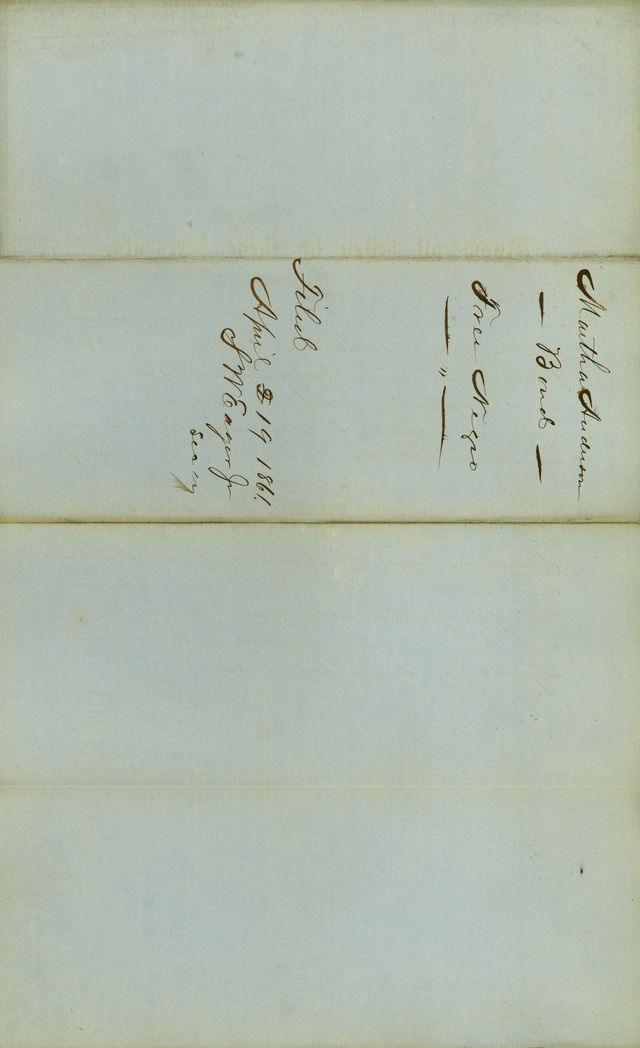 Martha Anderson
— Bond —
Free Negro
— " —
Filed
April 19 1861
S W Eager Jr
Secy